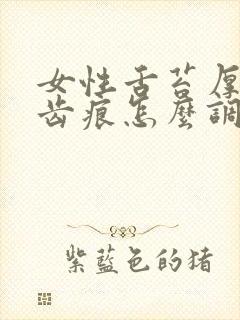 女性舌苔厚
齿痕怎麼調
紫藍色的猪